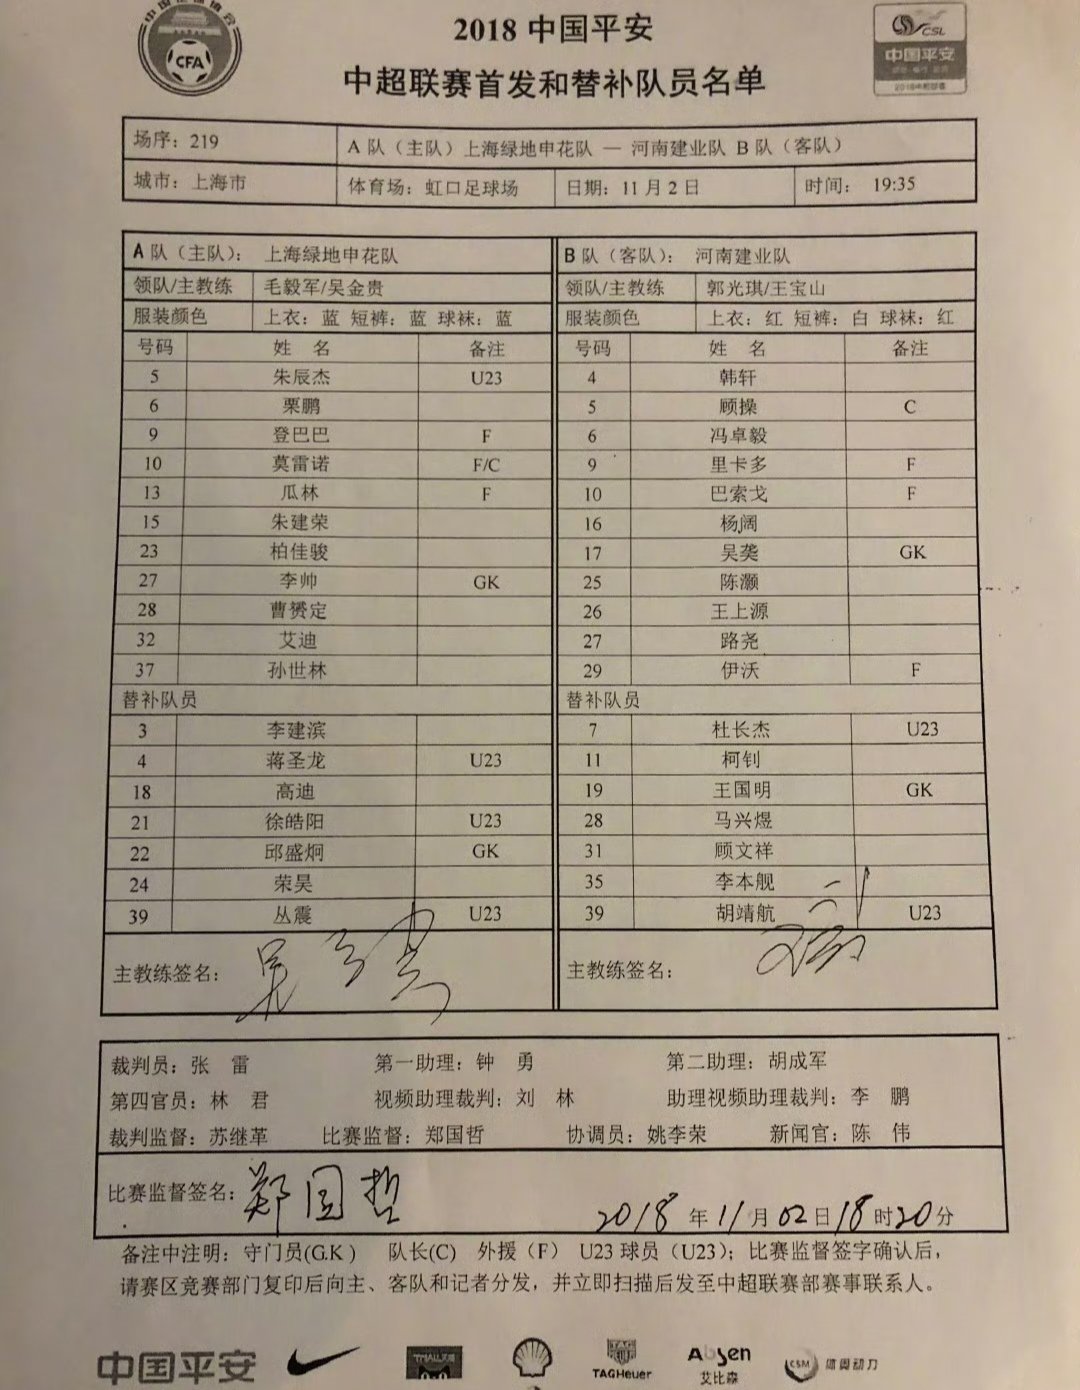 CFA
2018 中国平安
中超联赛首发和替补队员名单
CSL
中国平安
场序：219 A 队（主队）上海绿地申花队 — 河南建业队 B 队（客队）
城市：上海市 体育场：虹口足球场 日期：11 月 2 日 时间： 19:35
A 队（主队）： 上海绿地申花队 B 队（客队）： 河南建业队
领队/主教练 毛毅军/吴金贵 领队/主教练 郭光琪/王宝山
服装颜色 上衣：蓝 短裤：蓝 球袜：蓝 服装颜色 上衣：红 短裤：白 球袜：红
号码 姓 名 备注 号码 姓 名 备注
5 朱辰杰 U23 4 韩轩
6 栗鹏 5 顾操 C
9 登巴巴 F 6 冯卓毅
10 莫雷诺 F/C 9 里卡多 F
13 瓜林 F 10 巴索戈 F
15 朱建荣 16 杨阔
23 柏佳骏 17 吴龑 GK
27 李帅 GK 25 陈灏
28 曹赟定 26 王上源
32 艾迪 27 路尧
37 孙世林 29 伊沃 F
替补队员 替补队员
3 李建滨 7 杜长杰 U23
4 蒋圣龙 U23 11 柯钊
18 高迪 19 王国明 GK
21 徐皓阳 U23 28 马兴煜
22 邱盛炯 GK 31 顾文祥
24 荣昊 35 李本舰
39 丛震 U23 39 胡靖航 U23
主教练签名： 主教练签名：
裁判员：张 雷 第一助理：钟 勇 第二助理：胡成军
第四官员：林 君 视频助理裁判：刘 林 助理视频助理裁判：李 鹏
裁判监督：苏继革 比赛监督：郑国哲 协调员：姚李荣 新闻官：陈 伟
比赛监督签名：郑国哲 2018 年 11 月 02 日 18 时 20 分
备注中注明：守门员(GK) 队长(C) 外援（F） U23 球员（U23）；比赛监督签字确认后，
请赛区竞赛部门复印后向主、客队和记者分发，并立即扫描后发至中超联赛部赛事联系人。
中国平安 TAG TAGHeuer Absen 艾比森 CSM 体奥动力